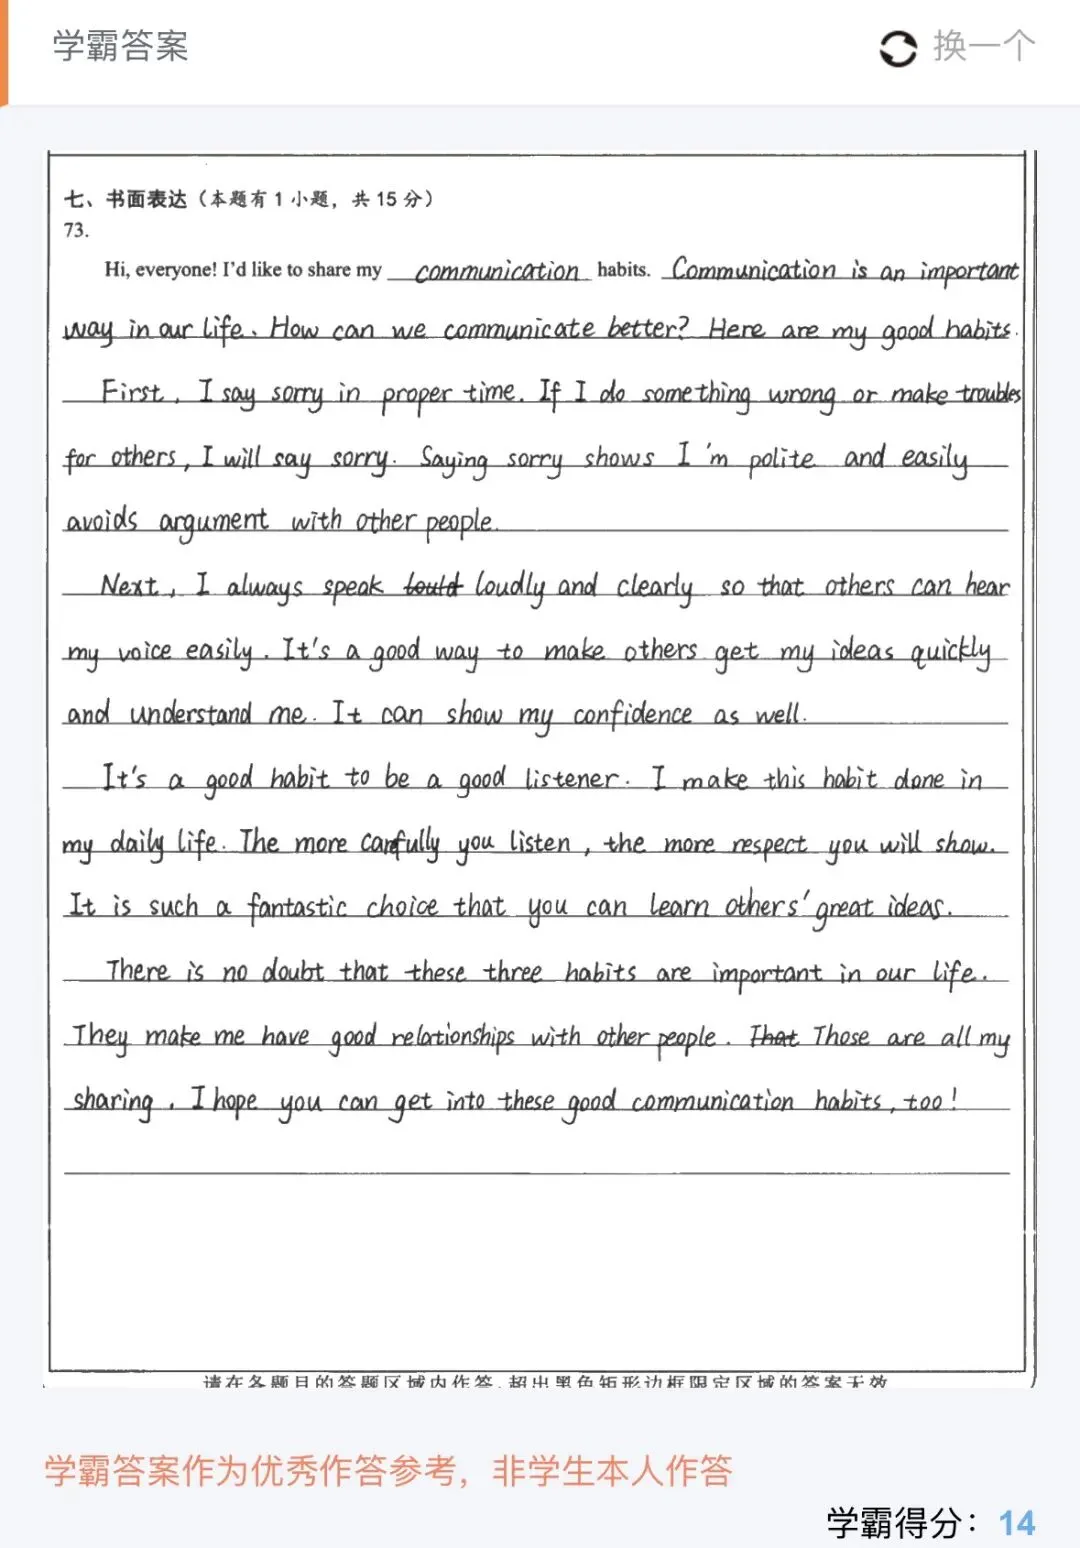 学霸答案
换一个
七、书面表达（本题有 1 小题，共 15 分）
73.
Hi, everyone! I'd like to share my communication habits. Communication is an important
way in our life. How can we communicate better? Here are my good habits.
First, I say sorry in proper time. If I do something wrong or make troubles
for others, I will say sorry. Saying sorry shows I'm polite and easily
avoids argument with other people.
Next, I always speak loudly and clearly so that others can hear
my voice easily. It's a good way to make others get my ideas quickly
and understand me. It can show my confidence as well.
It's a good habit to be a good listener. I make this habit done in
my daily life. The more carfully you listen, the more respect you will show.
It is such a fantastic choice that you can learn others' great ideas.
There is no doubt that these three habits are important in our life.
They make me have good relationships with other people. That Those are all my
sharing. I hope you can get into these good communication habits, too!
请在各题目的答题区域内作答，超出黑色矩形边框限定区域的答案无效
学霸答案作为优秀作答参考，非学生本人作答
学霸得分：14